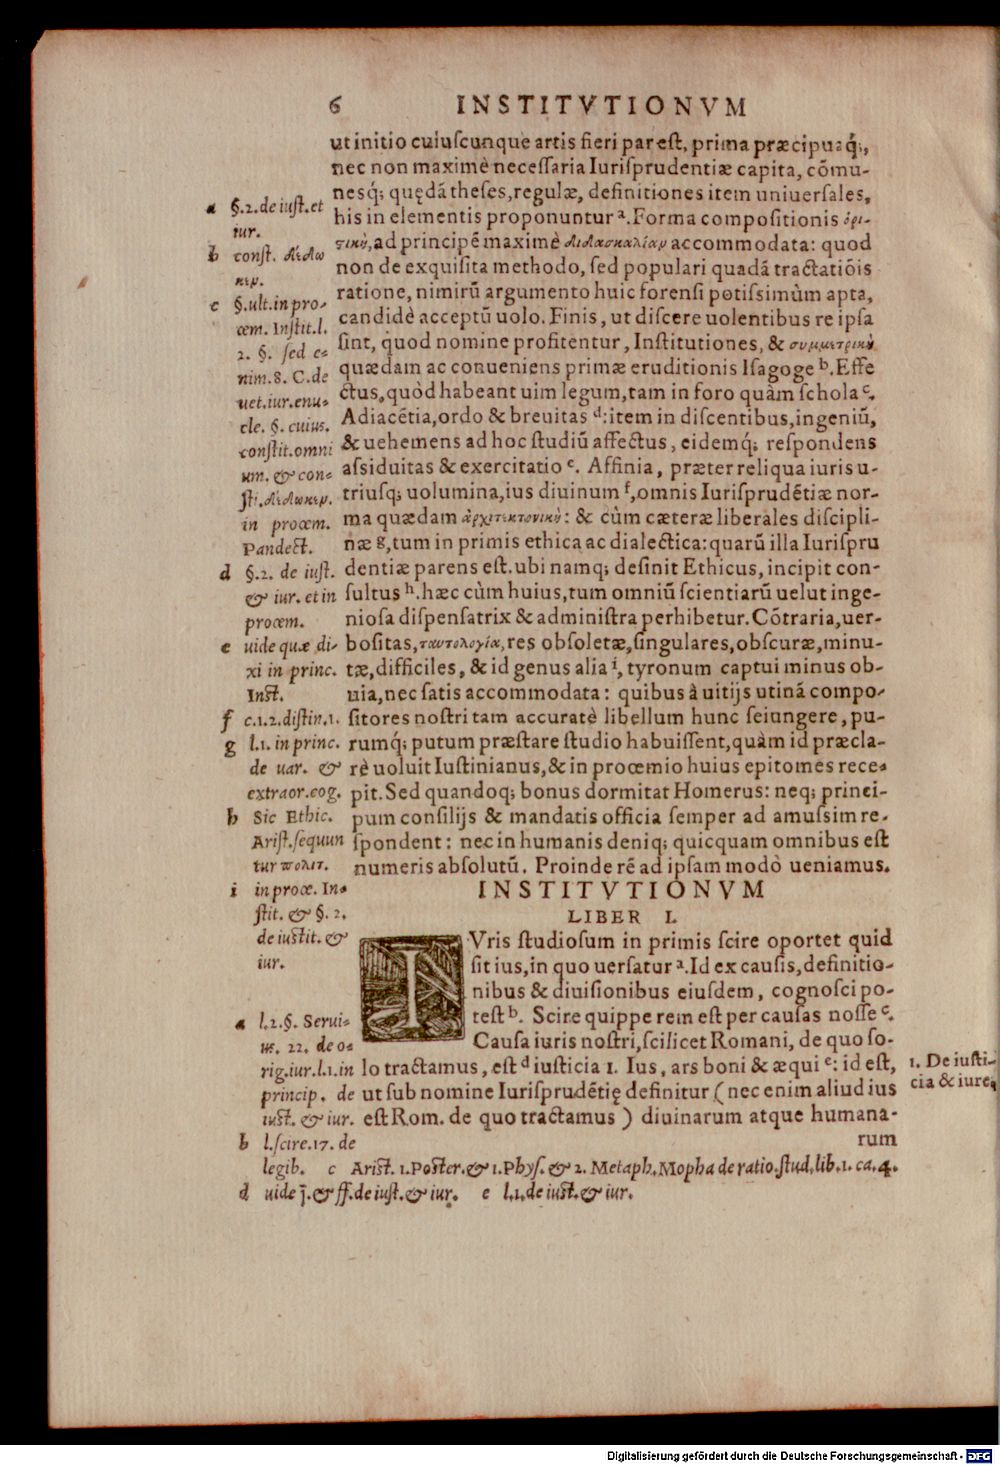 6 INSTITVTIONVM
ut initio cuiuscunque artis fieri par est, prima præcipuaq́;,
nec non maximè necessaria Iurisprudentiæ capita, cõmu-
nesq́; quędã theses, regulæ, definitiones item uniuersales,
his in elementis proponuntur ᵃ. Forma compositionis ὁρι-
ϛικὴ, ad principẽ maximè διδασκαλίαν accommodata: quod
non de exquisita methodo, sed populari quadã tractatiõis
ratione, nimirũ argumento huic forensi potissimùm apta,
candidè acceptũ uolo. Finis, ut discere uolentibus re ipsa
sint, quod nomine profitentur, Institutiones, & συμμετρικὴ
quædam ac conueniens primæ eruditionis Isagoge ᵇ. Effe
ctus, quòd habeant uim legum, tam in foro quàm schola ᶜ.
Adiacẽtia, ordo & breuitas ᵈ: item in discentibus, ingeniũ,
& uehemens ad hoc studiũ affectus, eidemq́; respondens
assiduitas & exercitatio ᵉ. Affinia, præter reliqua iuris u-
triusq; uolumina, ius diuinum ᶠ, omnis Iurisprudẽtiæ nor-
ma quædam ἀρχιτεκτονικὴ: & cùm cæteræ liberales discipli-
næ ᵍ, tum in primis ethica ac dialectica: quarũ illa Iurispru
dentiæ parens est. ubi namq; desinit Ethicus, incipit con-
sultus ʰ. hæc cùm huius, tum omniũ scientiarũ uelut inge-
niosa dispensatrix & administra perhibetur. Cõtraria, uer-
bositas, ταυτολογία, res obsoletæ, singulares, obscuræ, minu-
tæ, difficiles, & id genus alia ⁱ, tyronum captui minus ob-
uia, nec satis accommodata: quibus à uitijs utinã compo-
sitores nostri tam accuratè libellum hunc seiungere, pu-
rumq́; putum præstare studio habuissent, quàm id præcla-
rè uoluit Iustinianus, & in proœmio huius epitomes rece-
pit. Sed quandoq; bonus dormitat Homerus: neq; princi-
pum consilijs & mandatis officia semper ad amussim re-
spondent: nec in humanis deniq; quicquam omnibus est
numeris absolutũ. Proinde rẽ ad ipsam modò ueniamus.
a §.2. de iust. et
iur.
b const. δέδω
κεν.
c §. ult. in pro-
œm. Instit. l.
2. §. sed e-
nim. 8. C. de
uet. iur. enu-
cle. §. cuius.
constit. omni
um. & con-
sti. δέδωκεν.
in proœm.
Pandect.
d §.2. de iust.
& iur. et in
proœm.
e uide quæ di-
xi in princ.
Inst.
f c.1.2. distin.1.
g l.1. in princ.
de uar. &
extraor. cog.
h Sic Ethic.
Arist. sequun
tur πολιτ.
i in proœ. In-
stit. & §. 2.
de iustit. &
iur.
INSTITVTIONVM
LIBER I.
IVris studiosum in primis scire oportet quid
sit ius, in quo uersatur ᵃ. Id ex causis, definitio-
nibus & diuisionibus eiusdem, cognosci po-
test ᵇ. Scire quippe rem est per causas nosse ᶜ.
Causa iuris nostri, scilicet Romani, de quo so-
lo tractamus, est ᵈ iusticia 1. Ius, ars boni & æqui ᵉ: id est,
ut sub nomine Iurisprudẽtię definitur (nec enim aliud ius
est Rom. de quo tractamus) diuinarum atque humana-
rum
1. De iusti-
cia & iure,
a l.2. §. Serui-
us. 22. de o-
rig. iur. l.1. in
princip. de
iust. & iur.
b l. scire. 17. de
legib. c Arist. 1. Poster. & 1. Phys. & 2. Metaph. Mopha de ratio. stud. lib. 1. ca. 4.
d uide j. & ff. de iust. & iur. e l.1. de iust. & iur.
Digitalisierung gefördert durch die Deutsche Forschungsgemeinschaft - DFG